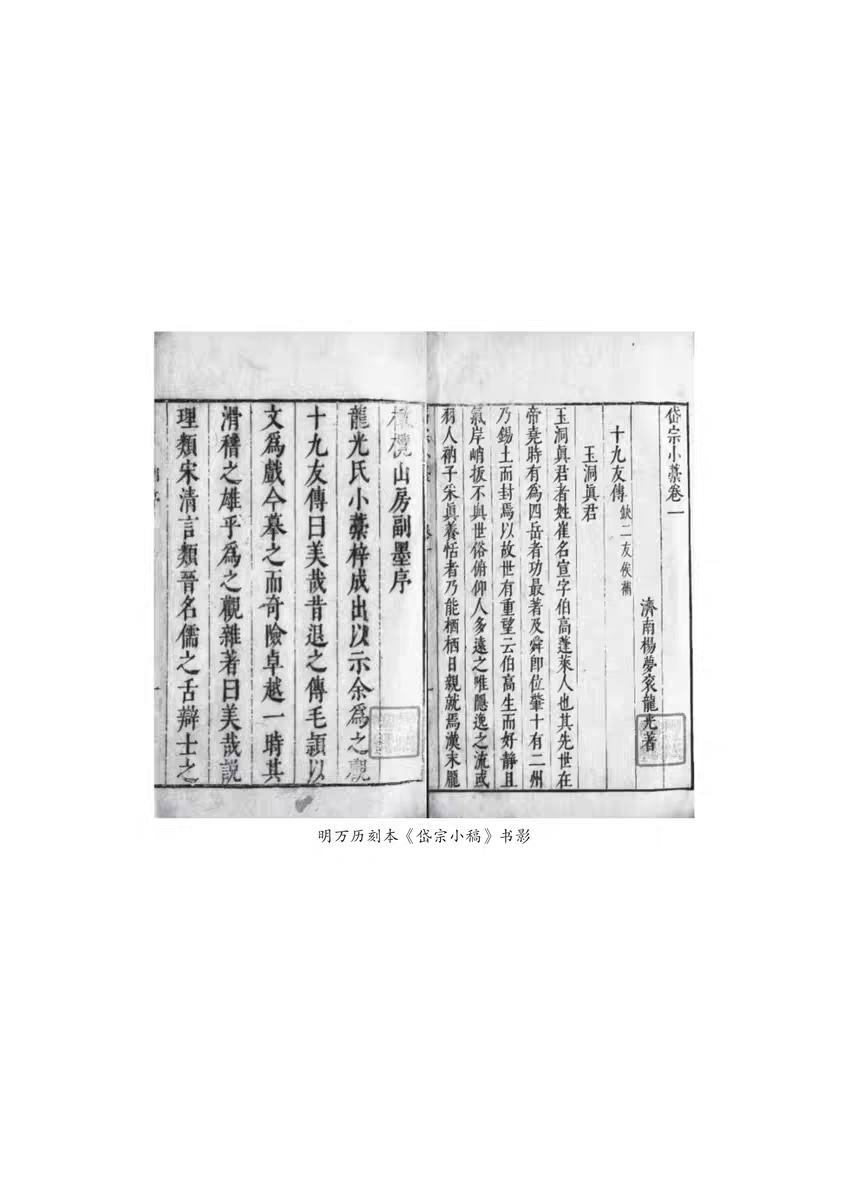 岱宗小藁卷一
濟南楊夢袞龍光著
十九友傳缺二友俟補
玉洞眞君
玉洞眞君者姓崔名宣字伯高蓬萊人也其先世在
帝堯時有為四岳者功最著及舜即位肇十有二州
乃錫土而封焉以故世有重望云伯高生而好静且
氣岸峭扳不與世俗俯仰人多遠之唯隱逸之流或
羽人衲子采眞養恬者乃能栖栖日親就焉漢末龎
山房副墨序
龍光氏小藁梓成出以示余為之觀
十九友傳曰美哉昔退之傳毛頴以
文為戲今摹之而奇險卓越一時其
滑稽之雄乎為之觀雜著曰美哉説
理類宋清言類晉名儒之舌辯士之
明万历刻本《岱宗小稿》书影